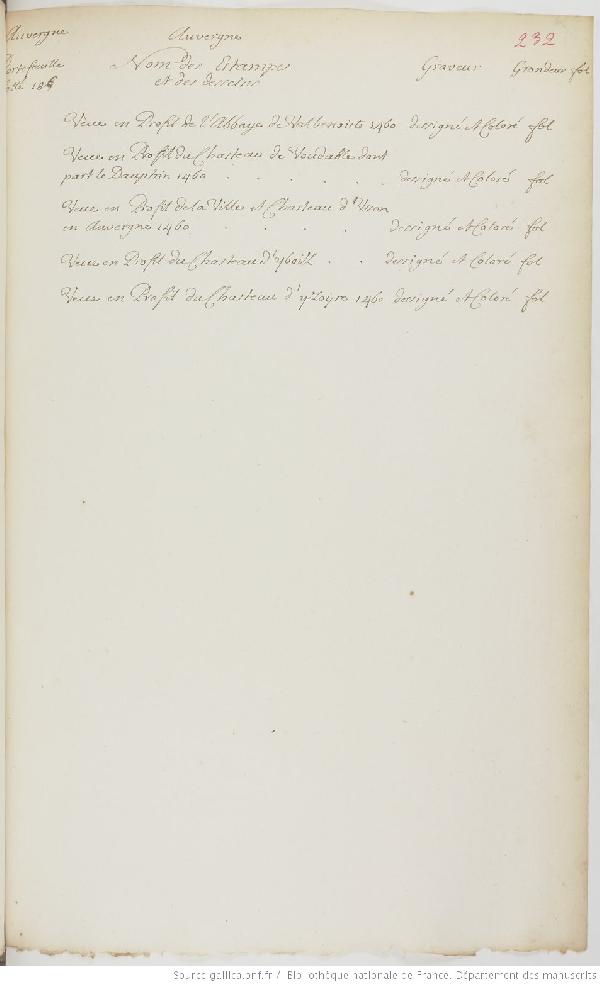 Auvergne
Auvergne
232
Portefeuille
Nom des Estampes
et des desseins
Graveur
Grandeur fol
Veue en Profil de l'Abbaye de Valbenoiste 1460 dessigné et Coloré fol
Veue en Profil du Chasteau de Vaudable dont
part le Dauphin 1460 . . . . . dessigné et Coloré fol
Veue en Profil de la Ville et Chasteau d'Usson
en Auvergne 1460 . . . . dessigné et Coloré fol
Veue en Profil du Chasteau d'yboist . . dessigné et Coloré fol
Veue en Profil du Chasteau d'yzoyre 1460 dessigné et Coloré fol
Source gallica.bnf.fr / Bibliothèque nationale de France. Département des manuscrits